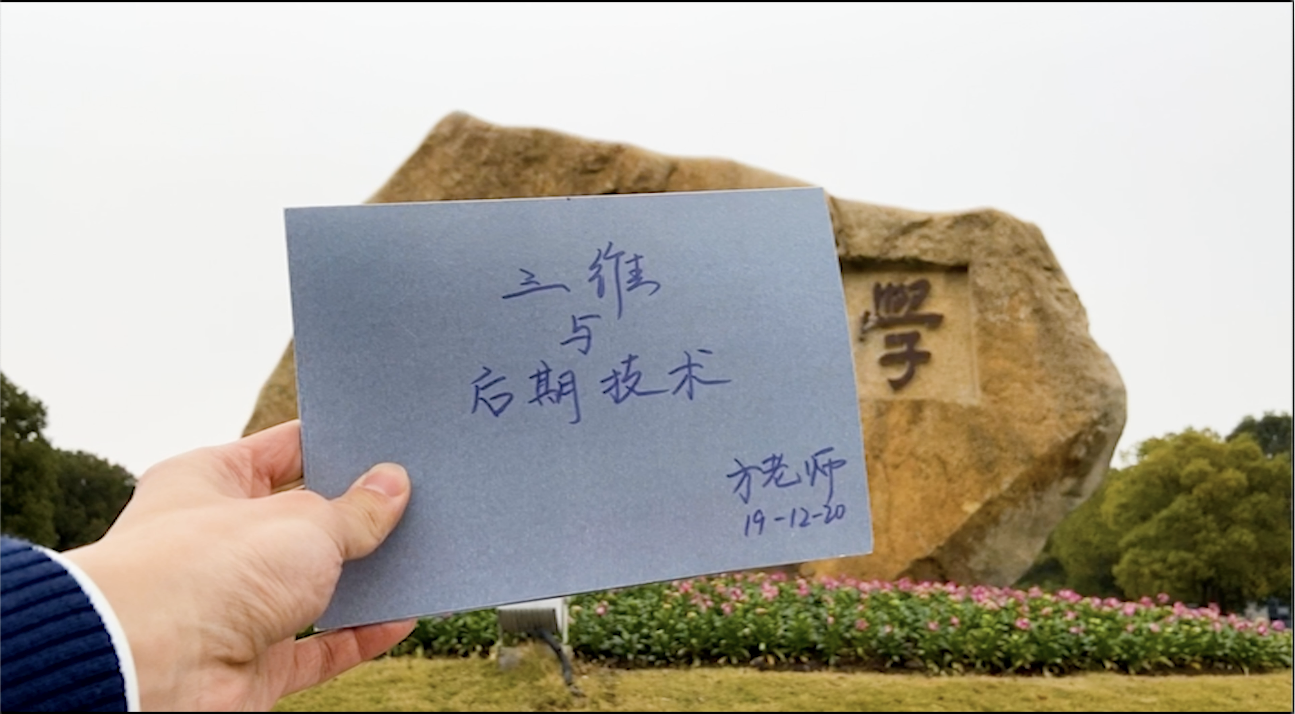 三维
与
后期技术
方老师
19-12-20
學